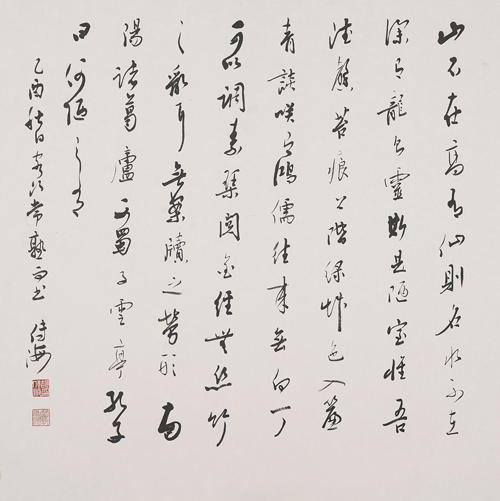 山不在高有仙則名水不在
深有龍則靈斯是陋室惟吾
德馨苔痕上階綠草色入簾
青談笑有鴻儒往來無白丁
可以調素琴閱金經無絲竹
之亂耳無案牘之勞形南
陽諸葛廬西蜀子雲亭孔子
曰何陋之有
乙酉秋日 常熟 書